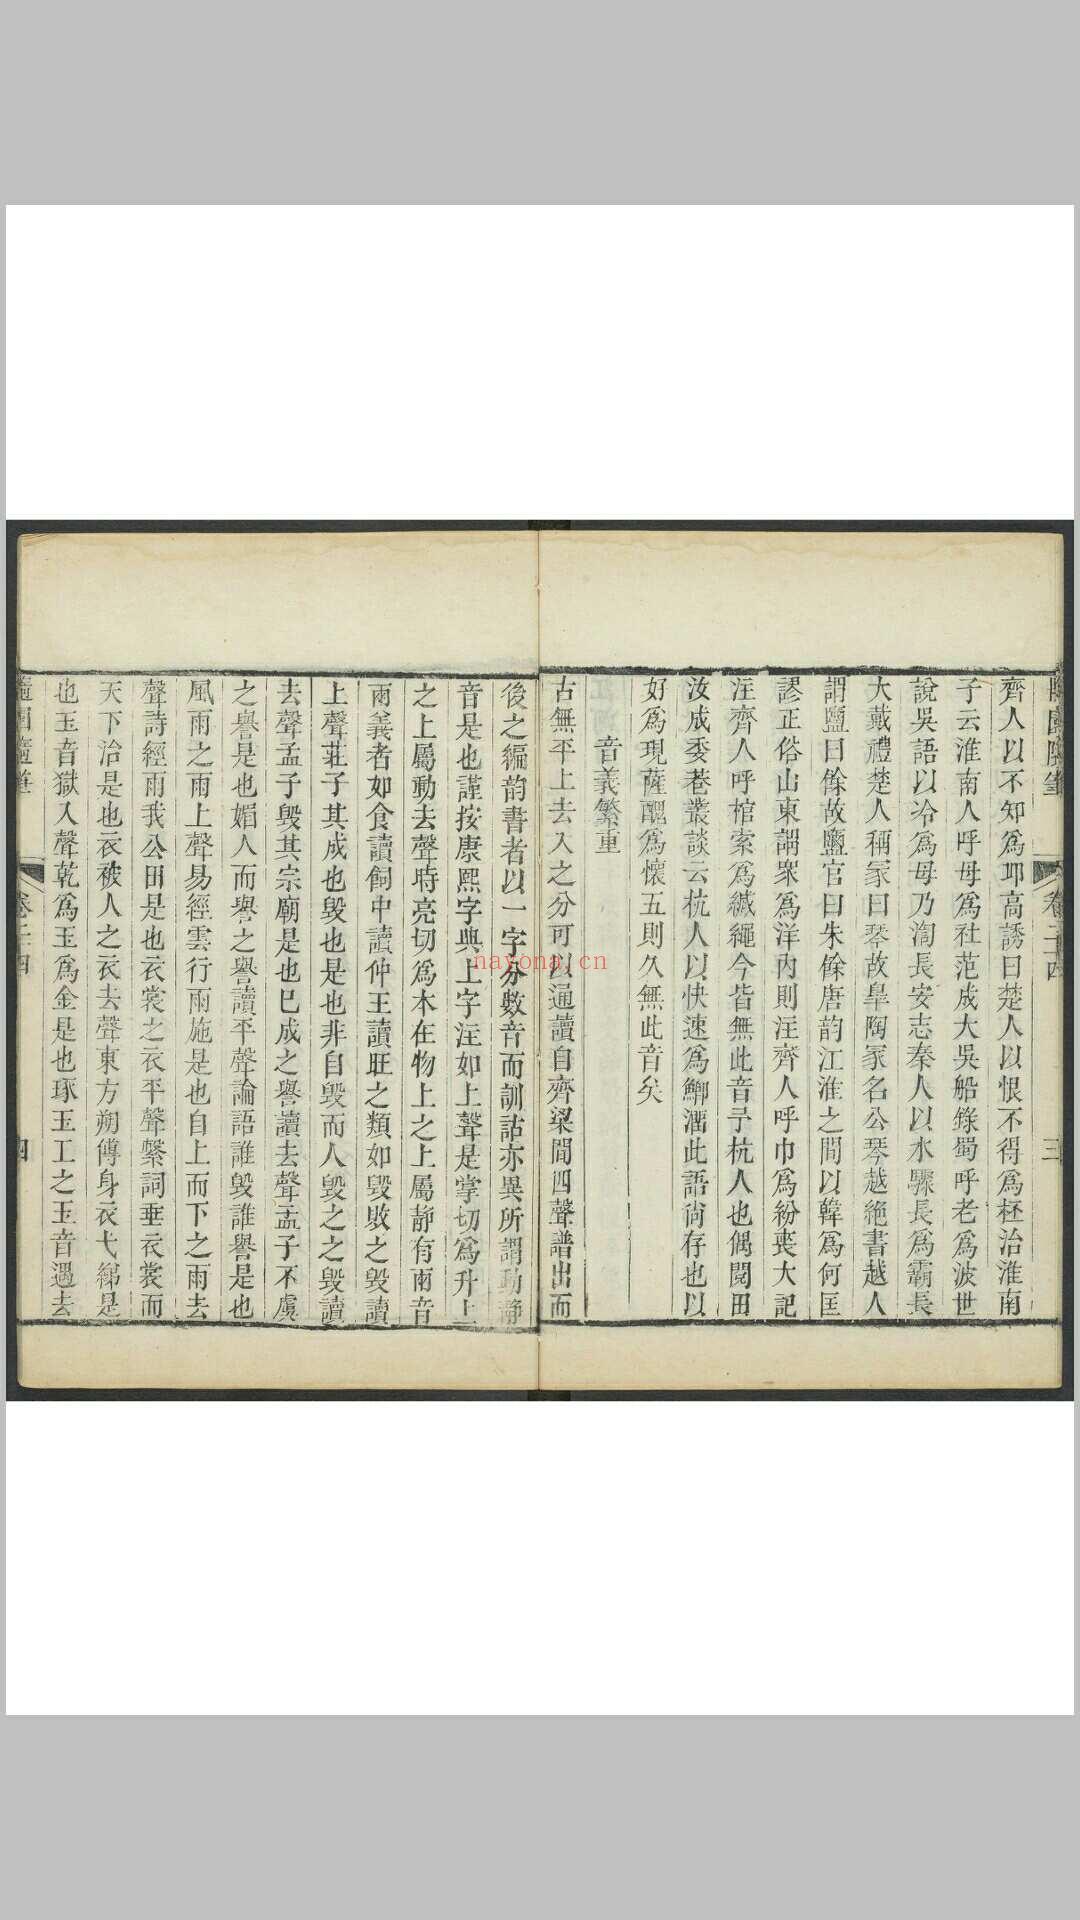 齊人以不知爲卭高誘曰楚人以恨不得爲柸治淮南
子云淮南人呼母爲社范成大吳船錄蜀呼老爲波世
說吳語以冷爲母乃渹長安志秦人以水驟長爲霸長
大戴禮楚人稱冢曰琴故臯陶冢名公琴越絶書越人
謂鹽曰餘故鹽官曰朱餘唐韵江淮之間以韓爲何匡
謬正俗山東謂衆爲洋內則注齊人呼巾爲紛喪大記
注齊人呼棺索爲緘繩今皆無此音予杭人也偶閱田
汝成委巷叢談云杭人以快速爲鯽溜此語尙存也以
好爲現薩醜爲懷五則久無此音矣
音義繁重
古無平上去入之分可以通讀自齊梁間四聲譜出而
後之編韵書者以一字分數音而訓詁亦異所謂動靜
音是也謹按康熙字典上字注如上聲是掌切爲升上
之上屬動去聲時亮切爲本在物上之上屬靜有兩音
兩義者如食讀飼中讀仲王讀旺之類如毀敗之毀讀
上聲莊子其成也毀也是也非自毀而人毀之之毀讀
去聲孟子毀其宗廟是也已成之譽讀去聲孟子不虞
之譽是也媚人而譽之譽讀平聲論語誰毀誰譽是也
風雨之雨上聲易經雲行雨施是也自上而下之雨去
聲詩經雨我公田是也衣裳之衣平聲繫詞垂衣裳而
天下治是也衣被人之衣去聲東方朔傅身衣弋綈是
也玉音獄入聲乾爲玉爲金是也琢玉工之玉音遇去
隨園隨筆
卷二十四
三
四
nayona.cn